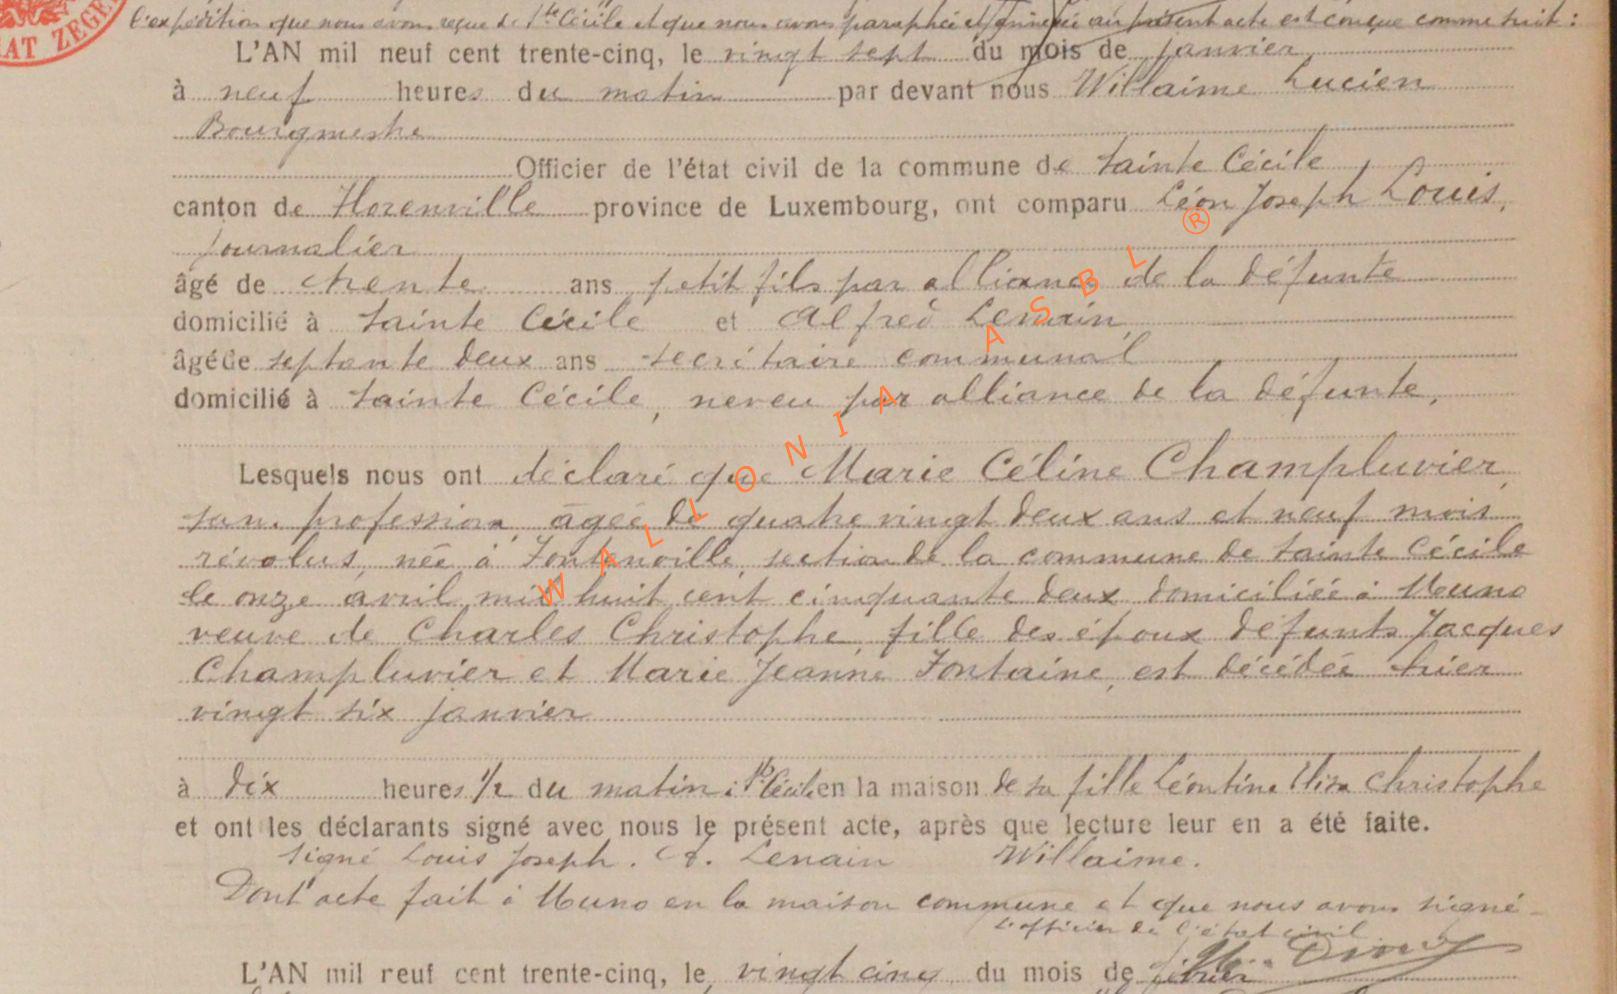 l'expédition que nous avons reçue de Ste Cécile et que nous avons paraphée et annexée au présent acte est conçue comme suit :
L'AN mil neuf cent trente-cinq, le vingt sept du mois de janvier
à neuf heures du matin par devant nous Willaime Lucien
Bourgmestre
Officier de l'état civil de la commune de Sainte Cécile
canton de Florenville province de Luxembourg, ont comparu Léon Joseph Louis,
journalier
âgé de trente ans petit fils par alliance de la défunte
domicilié à Sainte Cécile et Alfred Lenain,
âgé de septante deux ans secrétaire communal
domicilié à Sainte Cécile, neveu par alliance de la défunte,
Lesquels nous ont déclaré que Marie Céline Champluvier,
san. profession, âgée de quatre vingt deux ans et neuf mois
révolus, née à Fontenoille, section de la commune de Sainte Cécile
le onze avril mil huit cent cinquante deux domiciliée à Muno
veuve de Charles Christophe, fille des époux défunts Jacques
Champluvier et Marie Jeanne Fontaine, est décédée hier
vingt six janvier
à dix heures 1/2 du matin à Ste Cécile en la maison de sa fille Léontine Elisa Christophe
et ont les déclarants signé avec nous le présent acte, après que lecture leur en a été faite.
Signé Louis Joseph. A. Lenain Willaime.
Dont acte fait à Muno en la maison commune et que nous avons signé
L'officier de l'état civil
L'AN mil neuf cent trente-cinq, le vingt cinq du mois de février
WALLONIA ASBL ®